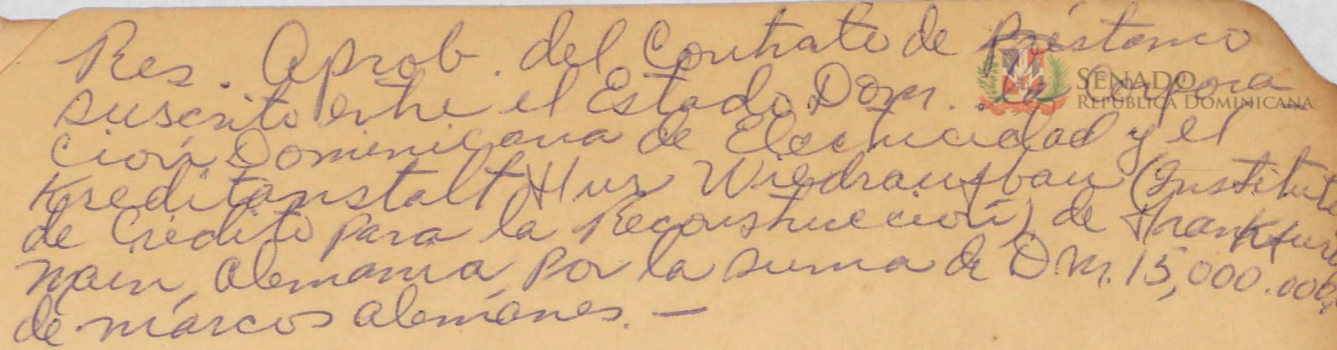 Res. Aprob. del Contrato de Préstamo
suscrito entre el Estado Dom. la Corpora
ción Dominicana de Electricidad y el
Kreditanstalt Hur Wiedraufbau (Instituto
de Crédito para la Reconstrucción) de Frankfurt
Main, Alemania, por la suma de DM. 15,000.000
de marcos alemanes. —
SENADO
REPÚBLICA DOMINICANA